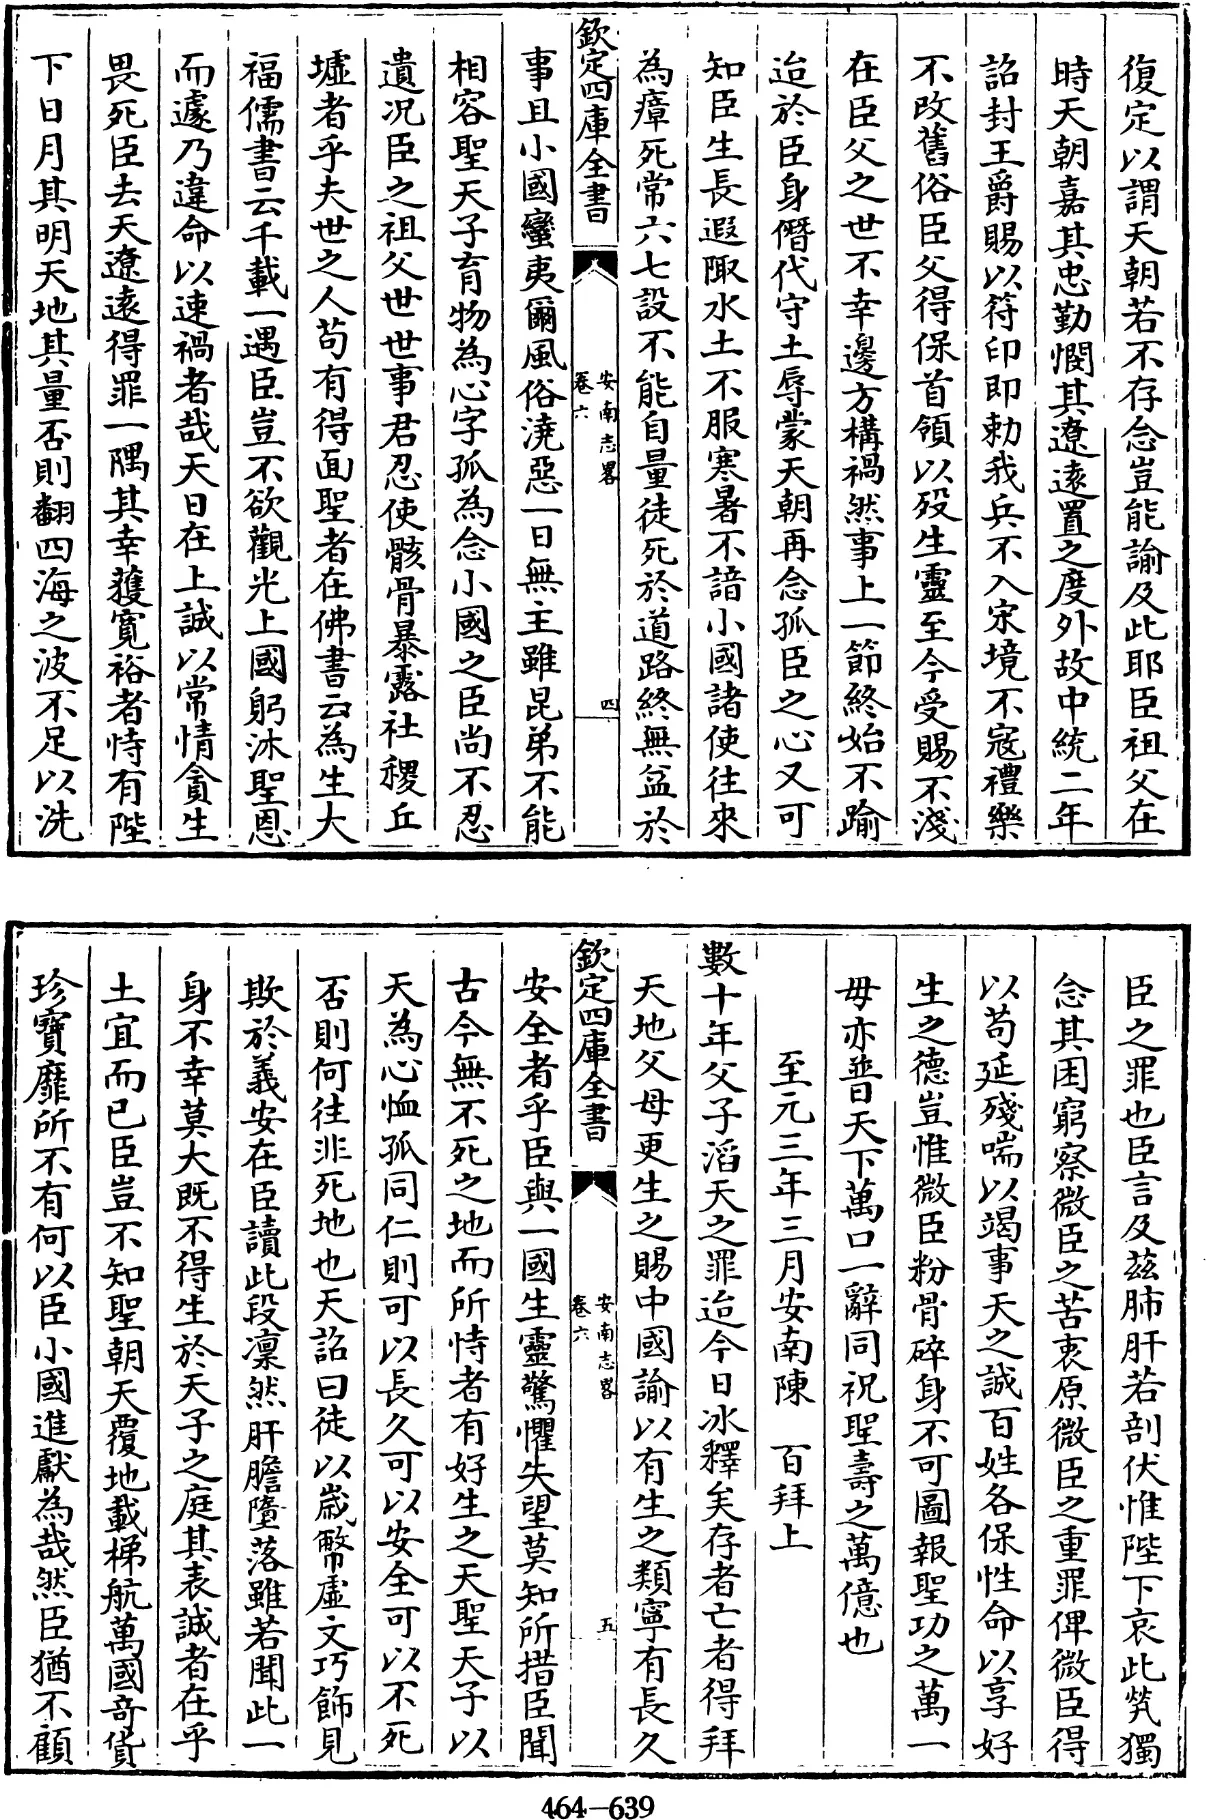 復定以謂天朝若不存念豈能諭及此耶臣祖父在
時天朝嘉其忠勤憫其遼遠置之度外故中統二年
詔封王爵賜以符印即勅我兵不入宋境不寇禮樂
不改舊俗臣父得保首領以歿生靈至今受賜不淺
在臣父之世不幸邊方構禍然事上一節終始不踰
迨於臣身僭代守土辱蒙天朝再念孤臣之心又可
知臣生長遐陬水土不服寒暑不諳小國諸使往來
為瘴死常六七設不能自量徒死於道路終無益於
欽定四庫全書
安南志畧
卷六
四
事且小國蠻夷爾風俗澆惡一日無主雖昆弟不能
相容聖天子育物為心字孤為念小國之臣尚不忍
遺况臣之祖父世世事君忍使骸骨暴露社稷丘
墟者乎夫世之人苟有得面聖者在佛書云為生大
福儒書云千載一遇臣豈不欲觀光上國躬沐聖恩
而遽乃違命以速禍者哉天日在上誠以常情貪生
畏死臣去天遼遠得罪一隅其幸獲寬裕者恃有陛
下日月其明天地其量否則翻四海之波不足以洗
臣之罪也臣言及茲肺肝若剖伏惟陛下哀此煢獨
念其困窮察微臣之苦衷原微臣之重罪俾微臣得
以苟延殘喘以竭事天之誠百姓各保性命以享好
生之德豈惟微臣粉骨碎身不可圖報聖功之萬一
毋亦普天下萬口一辭同祝聖壽之萬億也
至元三年三月安南陳　百拜上
數十年父子滔天之罪迨今日冰釋矣存者亡者得拜
天地父母更生之賜中國諭以有生之類寧有長久
欽定四庫全書
安南志畧
卷六
五
安全者乎臣與一國生靈驚懼失望莫知所措臣聞
古今無不死之地而所恃者有好生之天聖天子以
天為心恤孤同仁則可以長久可以安全可以不死
否則何往非死地也天詔曰徒以歲幣虛文巧飾見
欺於義安在臣讀此段凜然肝膽墮落雖若聞此一
身不幸莫大既不得生於天子之庭其表誠者在乎
土宜而已臣豈不知聖朝天覆地載梯航萬國奇貨
珍寶靡所不有何以臣小國進獻為哉然臣猶不顧
464-639